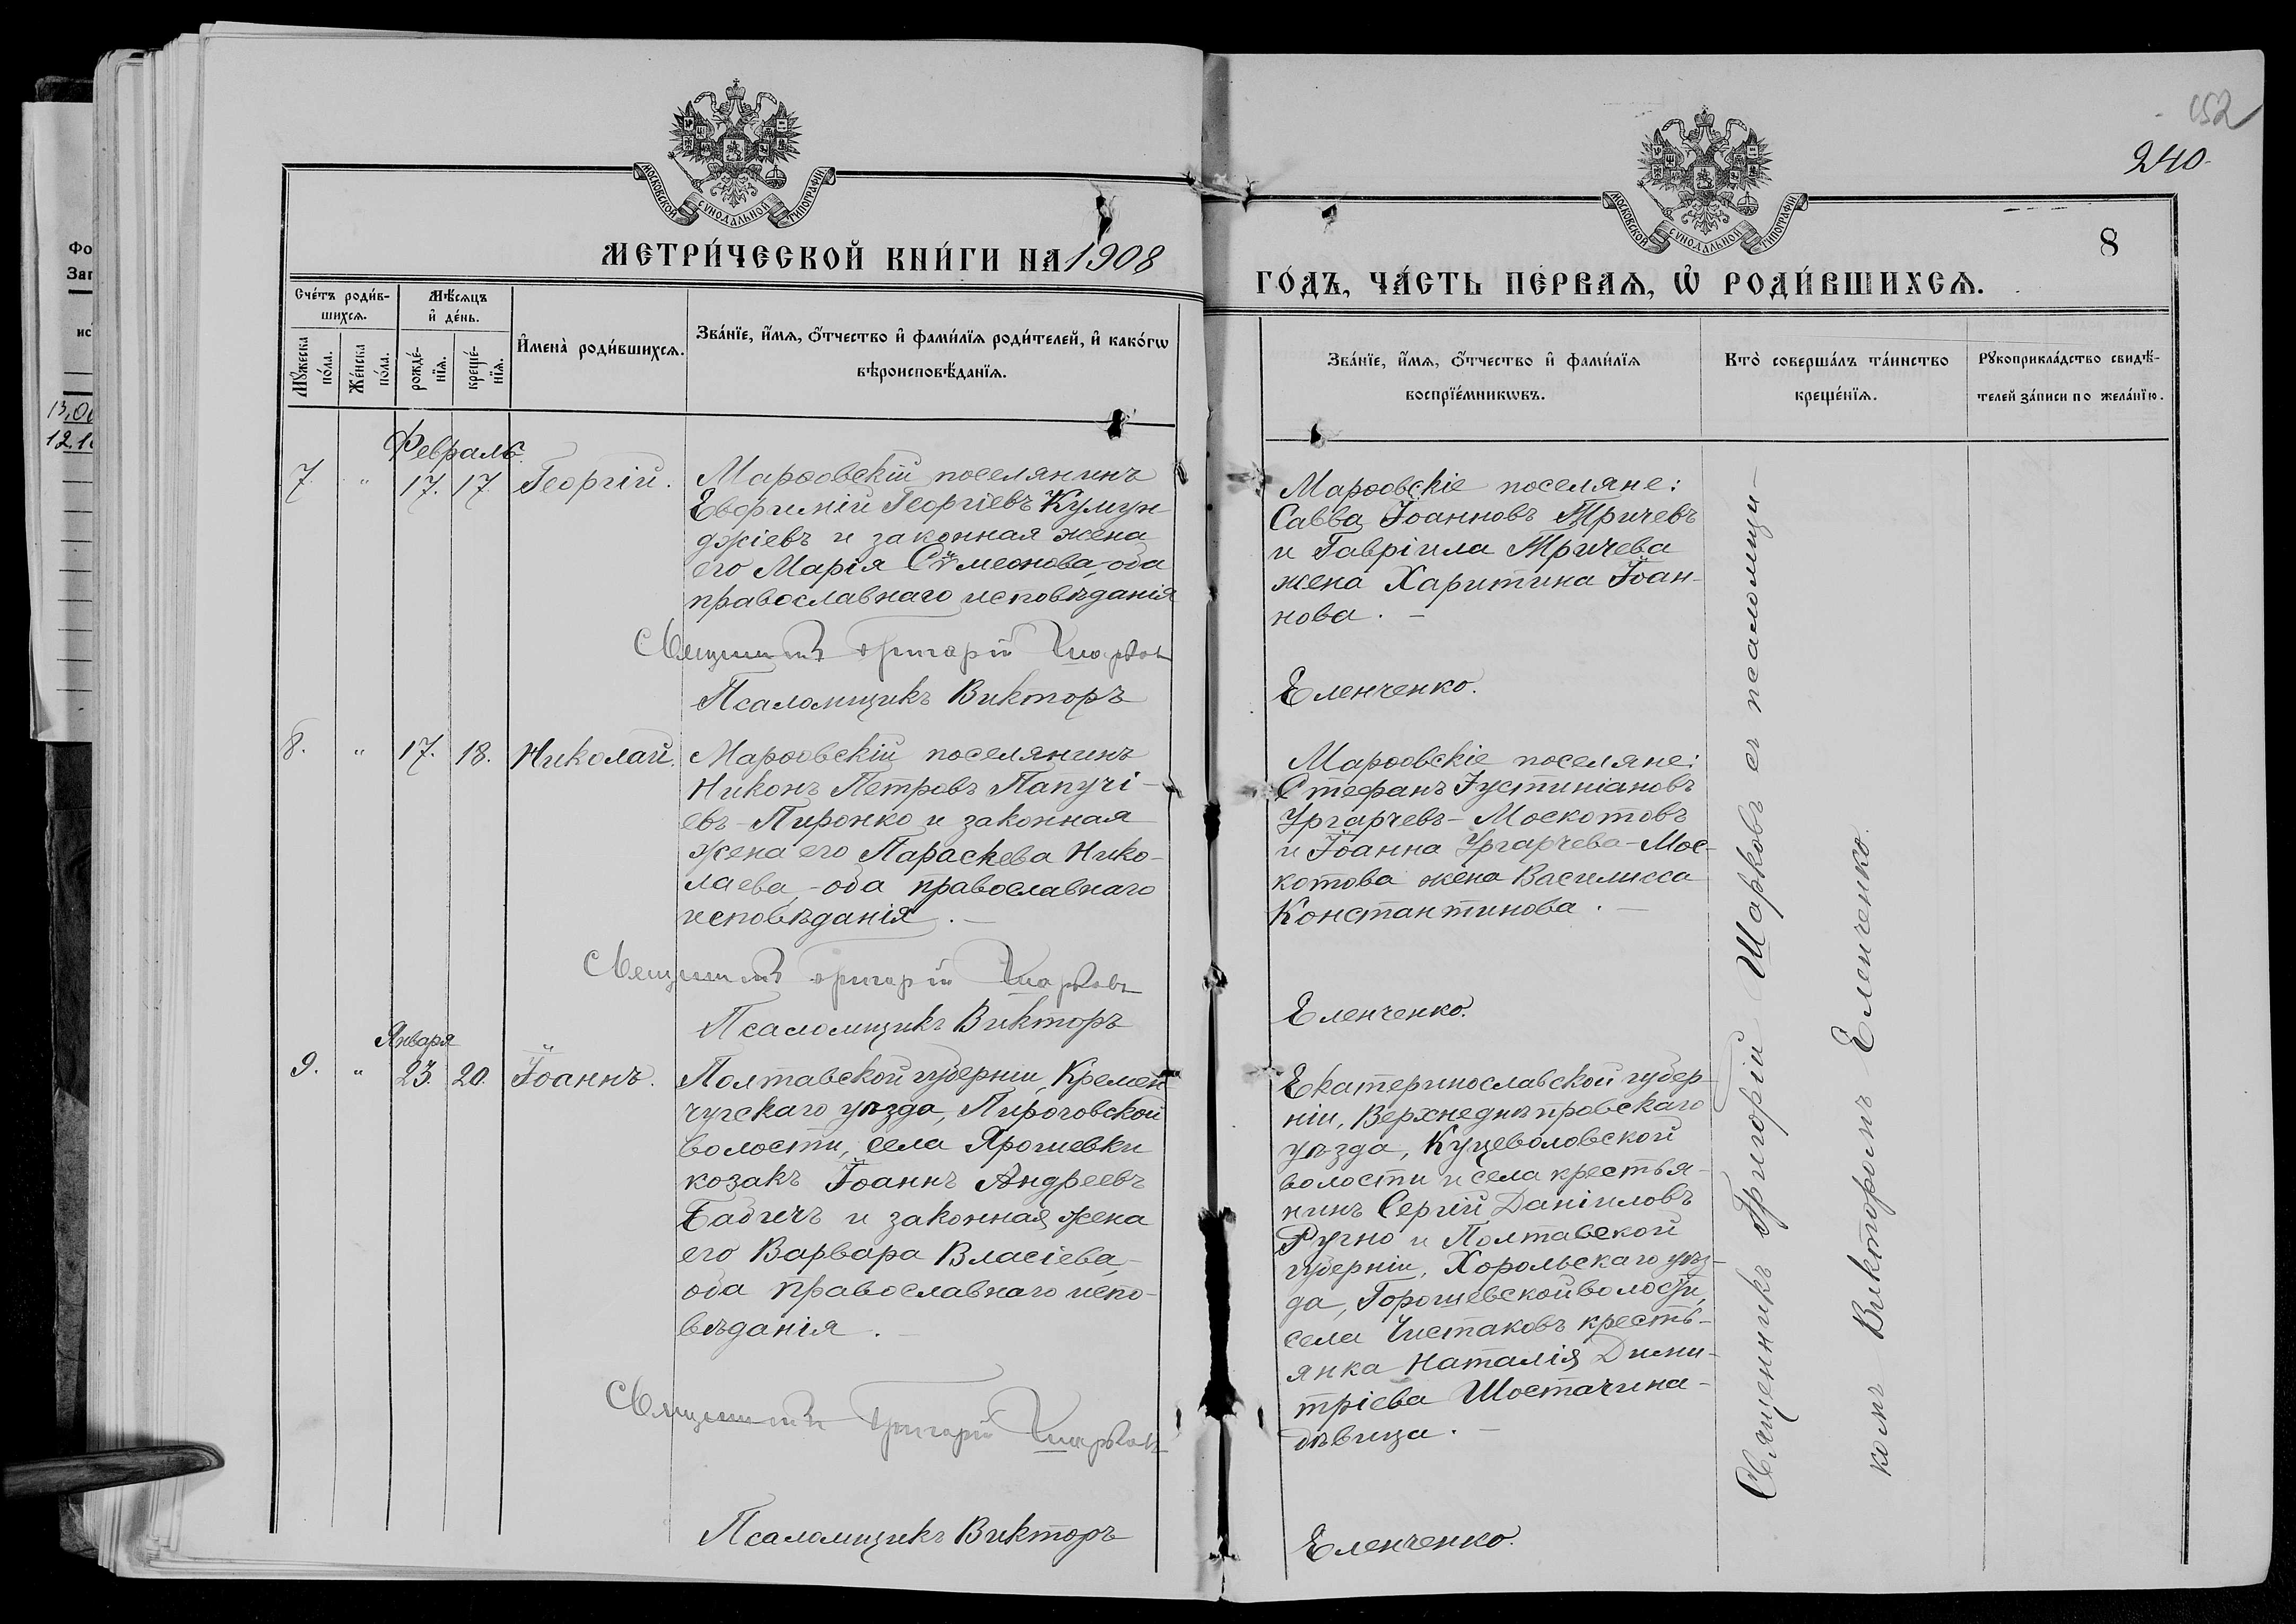 152
240
8
МОСКОВСКОЙ СѴНОДАЛЬНОЙ ТИПОГРАФІИ
МОСКОВСКОЙ СѴНОДАЛЬНОЙ ТИПОГРАФІИ
МЕТРИ́ЧЕСКОЙ КНИ́ГИ НА 1908
ГО́ДЪ, ЧА́СТЬ ПЕ́РВАѦ, Ѡ҆ РОДИ́ВШИХСѦ.
Сче́тъ роди́в-
шихсѧ.
Мѣ́сѧцъ
и҆ де́нь.
Мꙋ́жеска
по́ла.
Же́нска
по́ла.
рожде́-
нїѧ.
креще́-
нїѧ.
И҆мена̀ роди́вшихсѧ.
Зва́нїе, и҆́мѧ, ѻ҆́тчество и҆ фами́лїѧ роди́телей, и҆ како́гѡ
вѣроисповѣ́данїѧ.
Зва́нїе, и҆́мѧ, ѻ҆́тчество и҆ фами́лїѧ
воспрїе́мникѡвъ.
Кто̀ соверша́лъ та́инство
креще́нїѧ.
Рꙋкоприкла́дство свидѣ́-
телей за́писи по жела́нїю.
Фо
Зап
ис
Февраль.
7. " 17. 17 Георгій.
Марфовскій поселянинъ
Евфимій Георгіевъ Кумун-
джіевъ и законная жена
его Марія Сѵмеонова, оба
православнаго исповѣданія
Священникъ Григорій Шарковъ
Псаломщикъ Викторъ
Марфовскіе поселяне:
Савва Іоанновъ Тричевъ
и Гавріила Тричева
жена Харитина Іоан-
нова. —
Еленченко.
8. " 17. 18. Николай.
Марфовскій поселянинъ
Никонъ Петровъ Папучі-
евъ-Пиронко и законная
жена его Параскева Нико-
лаева, оба православнаго
исповѣданія. —
Священникъ Григорій Шарковъ
Псаломщикъ Викторъ
Марфовскіе поселяне:
Стефанъ Іустиніановъ
Ургарчевъ-Москотовъ
и Іоанна Ургарчева-Мос-
котова жена Василисса
Константинова. —
Еленченко.
Января
9. " 23. 20. Іоаннъ.
Полтавской губерніи, Кремен-
чугскаго уѣзда, Пироговской
волости, села Ярошевки
козакъ Іоаннъ Андреевъ
Бабичъ и законная жена
его Варвара Власіева,
оба православнаго испо-
вѣданія. —
Священникъ Григорій Шарковъ
Псаломщикъ Викторъ
Екатеринославской губер-
ніи, Верхнеднѣпровскаго
уѣзда, Куцеволовской
волости и села крестья-
нинъ Сергій Даніиловъ
Ругно и Полтавской
губерніи, Хорольскаго уѣз-
да, Горошевской волости,
села Чистаковъ кресть-
янка Наталія Дими-
тріева Шостачина-
дѣвица. —
Еленченко.
Священникъ Григорій Шарковъ съ псаломщи-
комъ Викторомъ Еленченко.